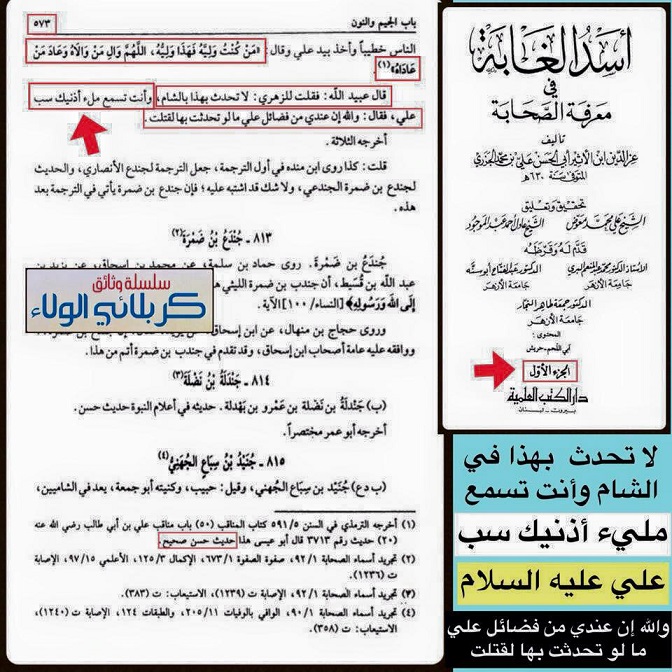 باب الجيم والنون
٥٧٣
الناس خطيباً وأخذ بيد علي وقال: «مَنْ كُنْتُ وَلِيَّهُ فَهَذَا وَلِيُّهُ، اللَّهُمَّ وَالِ مَنْ وَالَاهُ وَعَادِ مَنْ
عَادَاهُ»(١).
قال عبيد اللّه: فقلت للزهري: لا تحدث بهذا بالشام، وأنت تسمع ملء أذنيك سب
علي، فقال: والله إن عندي من فضائل علي ما لو تحدثت بها لقتلت.
أخرجه الثلاثة.
قلت: كذا روى ابن منده في أول الترجمة، جعل الترجمة لجندع الأنصاري، والحديث
لجندع بن ضمرة الجندعي، ولا شك قد اشتبه عليه؛ فإن جندع بن ضمرة يأتي في الترجمة بعد
هذه.
٨١٣ ـ جُنْدَعُ بْنُ ضَمْرَةَ(٢)
جُنْدَعُ بن ضَمْرَة. روى حماد بن سلمة، عن محمد بن إسحاق، عن يزيد بن
عبد اللّه بن قُسَيط، أن جندب بن ضمرة الليثي
إِلَى اللَّهِ وَرَسُولِهِ﴾ [النساء/ ١٠٠] الآية.
وروى حجاج بن منهال، عن ابن إسحاق
ووافقه عليه عامة أصحاب ابن إسحاق، وقد تقدم في جندب بن ضمرة أتم من هذا.
٨١٤ ـ جَنْدَلَةُ بْنُ نَضْلَةَ(٣)
(ب) جَنْدَلَةُ بْنُ نَضلة بن عَمْرو بن بَهْدلة. حديثه في أعلام النبوة حديث حسن.
أخرجه أبو عمر مختصراً.
٨١٥ ـ جُنَيْدُ بْنُ سِبَاعٍ الجُهَنِيُّ(٤)
(ب د ع) جُنَيْد بن سِبَاع الجُهني، وقيل: حبيب، وكنيته أبو جمعة، يعد في الشاميين،
(١) أخرجه الترمذي في السنن ٥٩١/٥ كتاب المناقب (٥٠) باب مناقب علي بن أبي طالب رضي الله عنه
(٢٠) حديث رقم ٣٧١٣ قال أبو عيسى هذا حديث حسن صحيح.
(٢) تجريد أسماء الصحابة ٩٢/١، صفوة الصفوة ٦٧٣/١، الإكمال ١٢٥/٣، الأعلمي ٩٧/١٥، الإصابة
ت (١٢٣٦).
(٣) تجريد أسماء الصحابة ٩٢/١، الإصابة ت (١٢٣٩)، الاستيعاب: ت (٣٨٣).
(٤) تجريد أسماء الصحابة ٩٠/١، الوافي بالوفيات ٢٠٥/١١، والطبقات ١٢٤، الإصابة ت (١٢٤٠)،
الاستيعاب: ت (٣٥٨).
سلسلة وثائق
كربلائي الولاء
أسد الغابة
في
معرفة الصحابة
تأليف
عز الدين ابن الأثير أبي الحسن علي بن محمد الجزري
المتوفى سنة ٦٣٠هـ
تحقيق وتعليق
الشيخ علي محمد معوض
الشيخ عادل أحمد عبد الموجود
قدم له وقرظه
الأستاذ الدكتور محمد عبد المنعم البري
جامعة الأزهر
الدكتور عبد الفتاح أبو سنة
جامعة الأزهر
الدكتور جمعة طاهر النجار
جامعة الأزهر
المحتوى:
أبي اللحم-حريش
الجزء الأول
دار الكتب العلمية
بيروت - لبنان
لا تحدث بهذا في
الشام وأنت تسمع
مليء أذنيك سب
علي عليه السلام
والله إن عندي من فضائل علي
ما لو تحدثت بها لقتلت